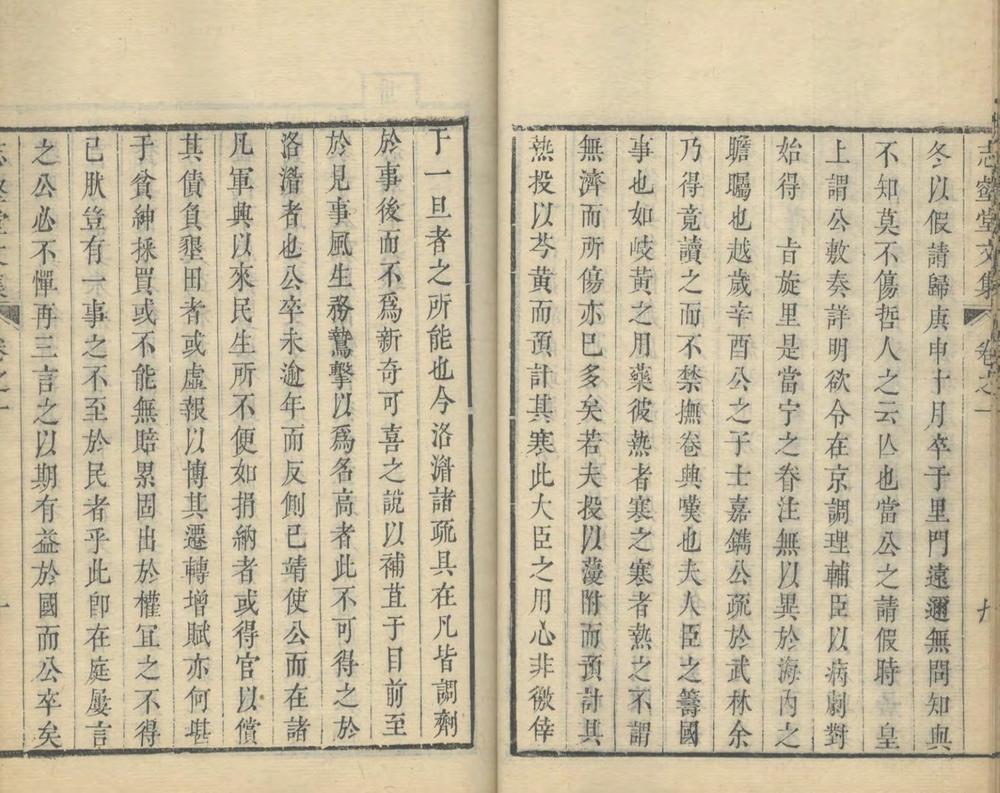 志壑堂文集 卷之一 九
冬以假請歸庚申十月卒于里門遠邇無問知與
不知莫不傷哲人之云亾也當公之請假時 皇
上謂公敷奏詳明欲令在京調理輔臣以病劇對
始得 㫖旋里是當宁之眷注無以異於海内之
瞻矚也越歲辛酉公之子士嘉鐫公疏於武林余
乃得竟讀之而不禁撫卷興嘆也夫人臣之籌國
事也如岐黃之用藥彼熱者寒之寒者熱之不謂
無濟而所傷亦已多矣若夫投以薓附而預計其
熱投以芩黃而預計其寒此大臣之用心非徼倖
于一旦者之所能也今洛濳諸疏具在凡皆調劑
於事後而不爲新奇可喜之說以補苴于目前至
於見事風生務鷙擊以爲名高者此不可得之於
洛濳者也公卒未逾年而反側已靖使公而在諸
凡軍典以來民生所不便如捐納者或得官以償
其債負墾田者或虛報以博其遷轉增賦亦何堪
于貧紳採買或不能無賠累固出於權冝之不得
已肰豈有一事之不至於民者乎此卽在庭屢言
之公必不憚再三言之以期有益於國而公卒矣
志壑堂文集 卷之一